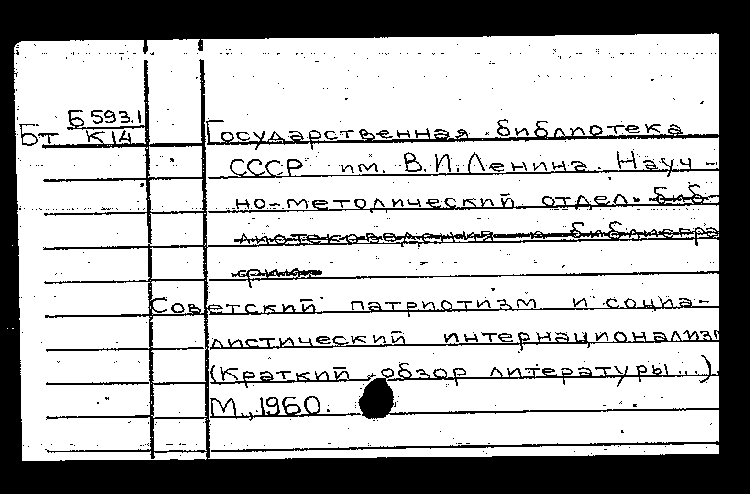 Б593.1
Бт К14
Государственная библиотека
СССР им. В.И. Ленина. Науч-
но-методический отдел. биб-
лиотековедения и библиогра
фии
Советский патриотизм и социа-
листический интернационализм
(Краткий обзор литературы...).
М., 1960.